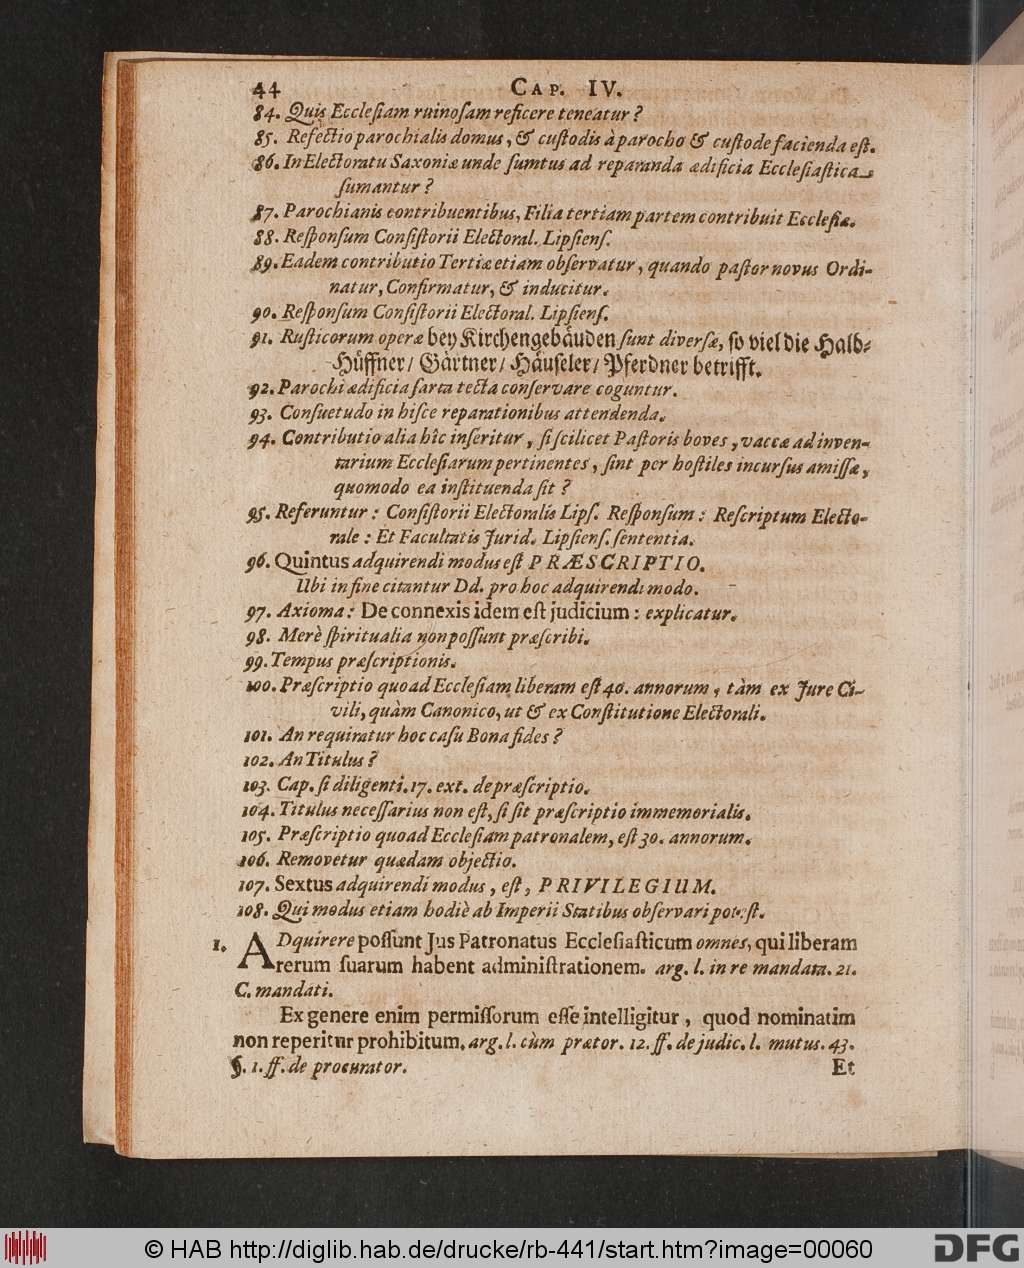 44 CAP. IV.
84. Quis Ecclesiam ruinosam reficere teneatur?
85. Refectio parochialis domus, & custodis à parocho & custode facienda est.
86. In Electoratu Saxoniæ unde sumtus ad reparanda ædificia Ecclesiastica
sumantur?
87. Parochianis contribuentibus, Filia tertiam partem contribuit Ecclesiæ.
88. Responsum Consistorii Electoral. Lipsiens.
89. Eadem contributio Tertiæ etiam observatur, quando pastor novus Ordi-
natur, Confirmatur, & inducitur.
90. Responsum Consistorii Electoral. Lipsiens.
91. Rusticorum operæ bey Kirchengebäuden sunt diversæ, so viel die Halb-
Hüffner/ Gärtner/ Häuseler/ Pferdner betrifft.
92. Parochi ædificia sarta tecta conservare coguntur.
93. Consuetudo in hisce reparationibus attendenda.
94. Contributio alia hîc inseritur, si scilicet Pastoris boves, vaccæ ad inven-
tarium Ecclesiarum pertinentes, sint per hostiles incursus amissæ,
quomodo ea instituenda sit?
95. Referuntur: Consistorii Electoralis Lips. Responsum: Rescriptum Electo-
rale: Et Facultatis Jurid. Lipsiens. sententia.
96. Quintus adquirendi modus est PRÆSCRIPTIO.
Ubi in fine citantur Dd. pro hoc adquirendi modo.
97. Axioma: De connexis idem est judicium: explicatur.
98. Merè spiritualia non possunt præscribi.
99. Tempus præscriptionis.
100. Præscriptio quoad Ecclesiam liberam est 40. annorum, tàm ex Jure Ci-
vili, quàm Canonico, ut & ex Constitutione Electorali.
101. An requiratur hoc casu Bona fides?
102. An Titulus?
103. Cap. si diligenti. 17. ext. de præscriptio.
104. Titulus necessarius non est, si sit præscriptio immemorialis.
105. Præscriptio quoad Ecclesiam patronalem, est 30. annorum.
106. Removetur quædam objectio.
107. Sextus adquirendi modus, est, PRIVILEGIUM.
108. Qui modus etiam hodiè ab Imperii Statibus observari potest.
1. ADquirere possunt Jus Patronatus Ecclesiasticum omnes, qui liberam
rerum suarum habent administrationem. arg. l. in re mandata. 21.
C. mandati.
Ex genere enim permissorum esse intelligitur, quod nominatim
non reperitur prohibitum. arg. l. cùm prætor. 12. ff. de judic. l. mutus. 43.
§. 1. ff. de procurator. Et
© HAB http://diglib.hab.de/drucke/rb-441/start.htm?image=00060
DFG